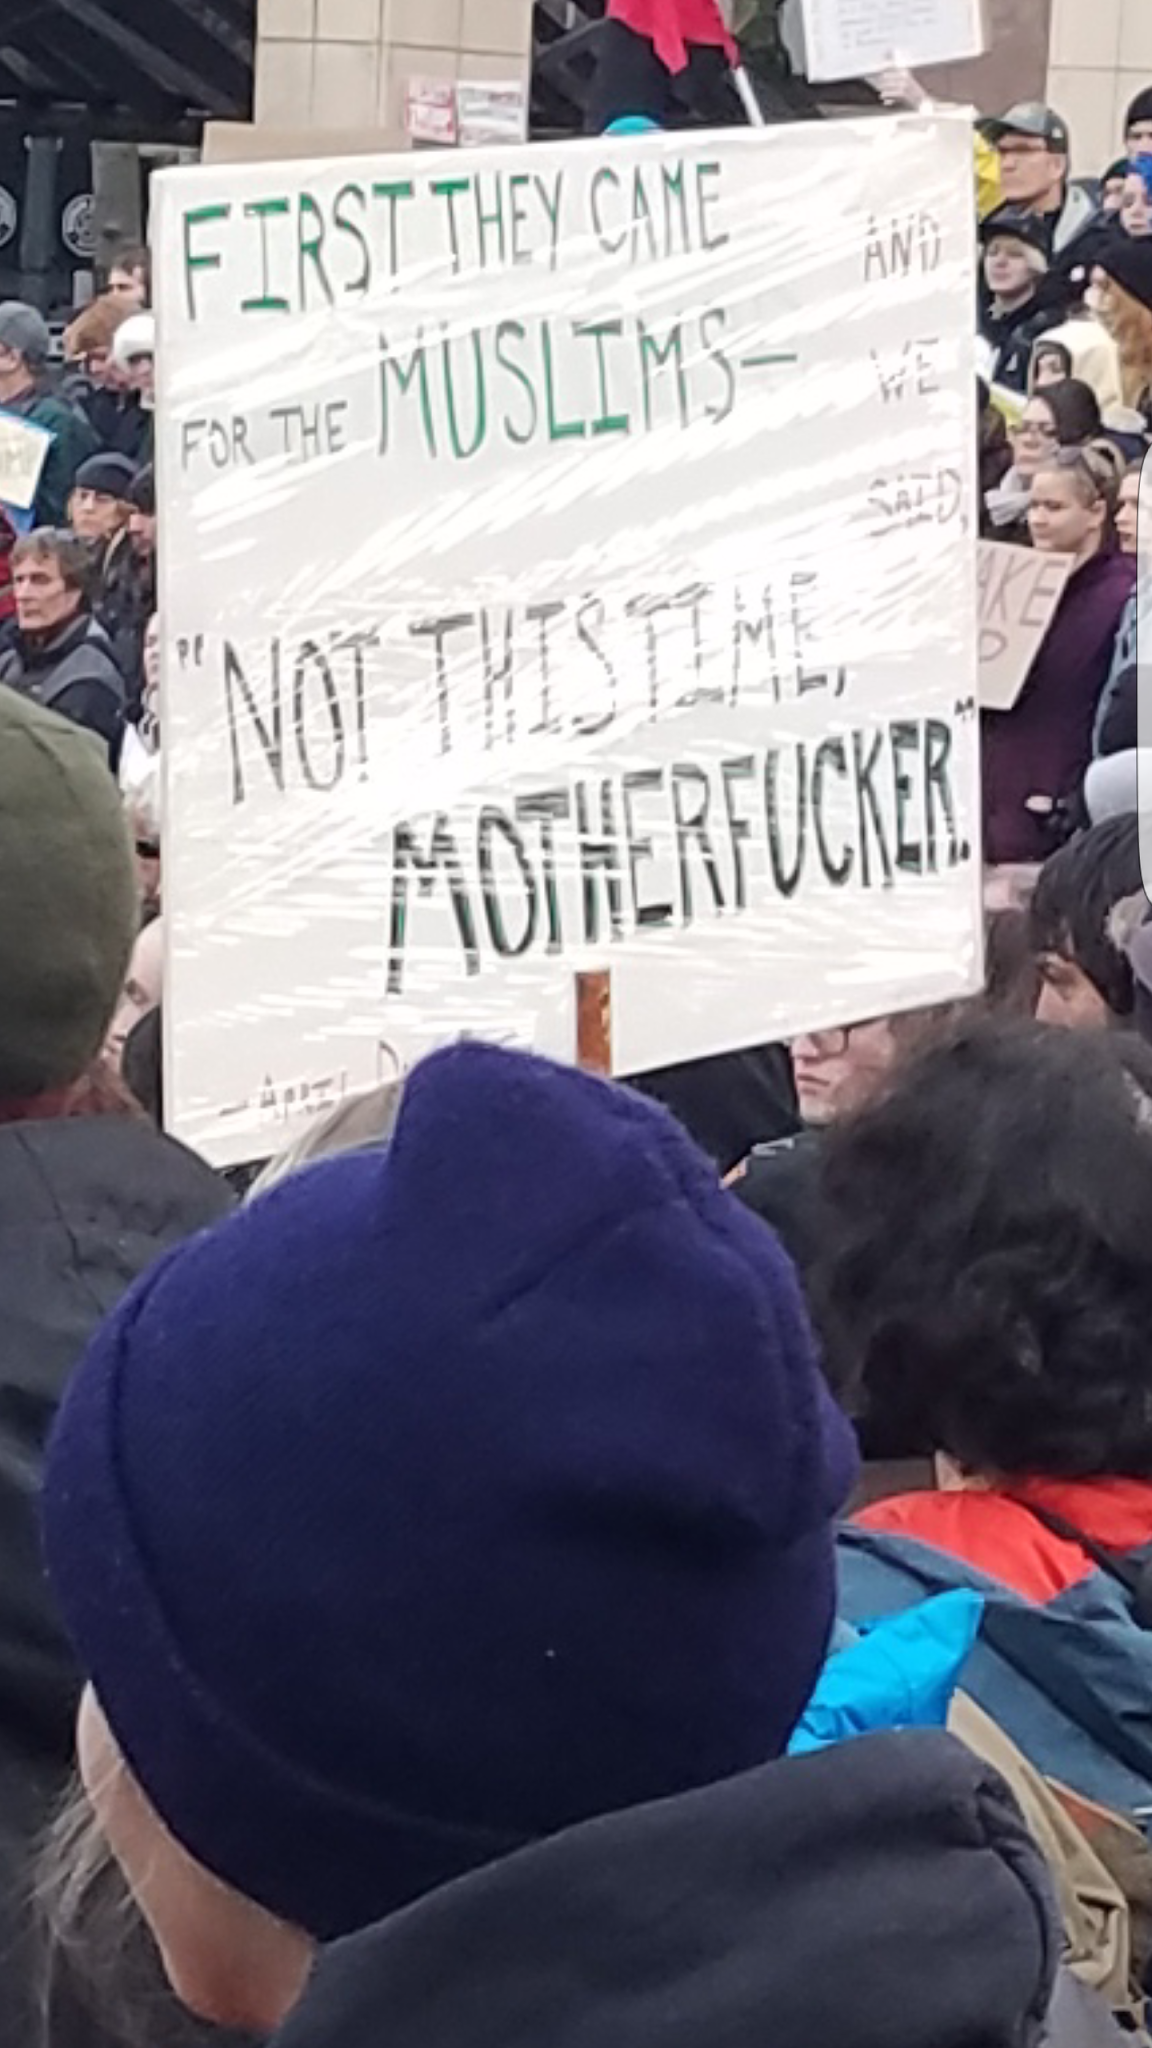 FIRST THEY CAME
FOR THE MUSLIMS—
AND
WE
SAID,
"NOT THIS TIME,
MOTHERFUCKER."
— APRIL
AKE